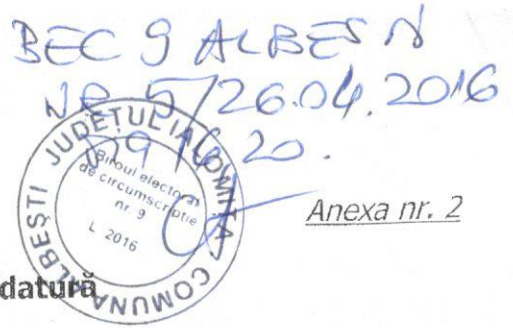 BEC 9 ALBEȘTI
NR 5/26.04.2016
JUDEȚUL IALOMIȚA
COMUNA ALBEȘTI
Biroul electoral
de circumscripție
nr. 9
L 2016
Anexa nr. 2
datură